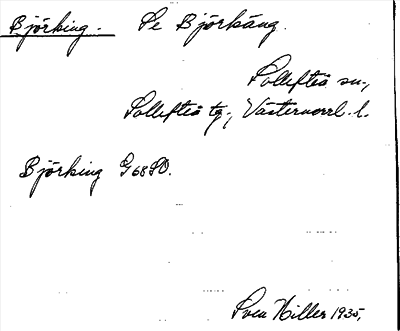 Björking. Se Björkäng.
Sollefteå sn.,
Sollefteå tg., Västernorrl. l.
Björking G 68 SO.
Sven Hiller 1935,